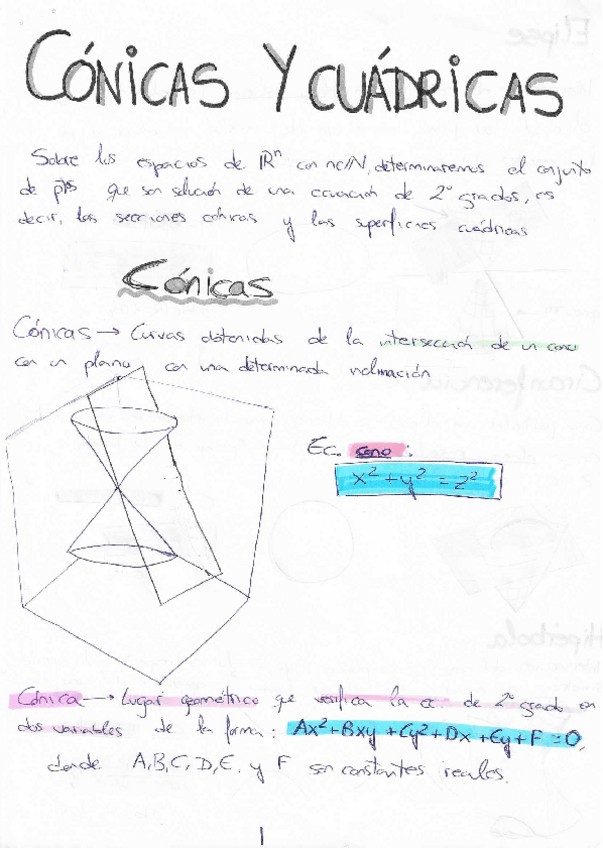 CÓNICAS Y CUÁDRICAS
Sobre los espacios de ℝⁿ con n∈ℕ, determinaremos el conjunto
de ptos que son solución de una ecuación de 2º grados, es
decir, las secciones cónicas y las superficies cuádricas
Cónicas
Cónicas → Curvas obtenidas de la intersección de un cono
con un plano con una determinada inclinación
Ec. cono:
x² + y² = z²
Cónica → Lugar geométrico que verifica la ec. de 2º grado en
dos variables de la forma: Ax²+Bxy+Cy²+Dx+Ey+F=0,
donde A,B,C,D,E y F son constantes reales.
1